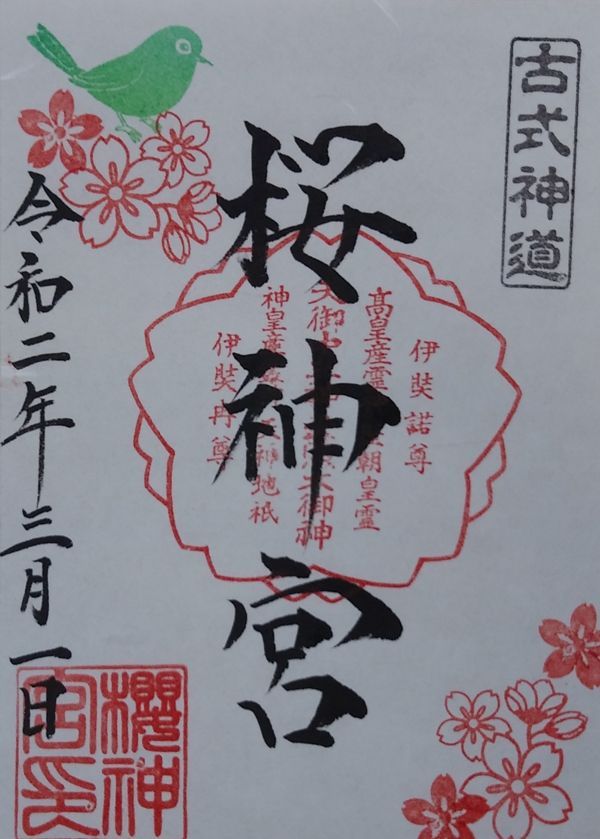 古式神道
桜神宮
伊奘諾尊
高皇産霊
朝皇霊
天御
大御神
神皇産
地祇
伊奘冉尊
令和二年三月一日
櫻神
宮印